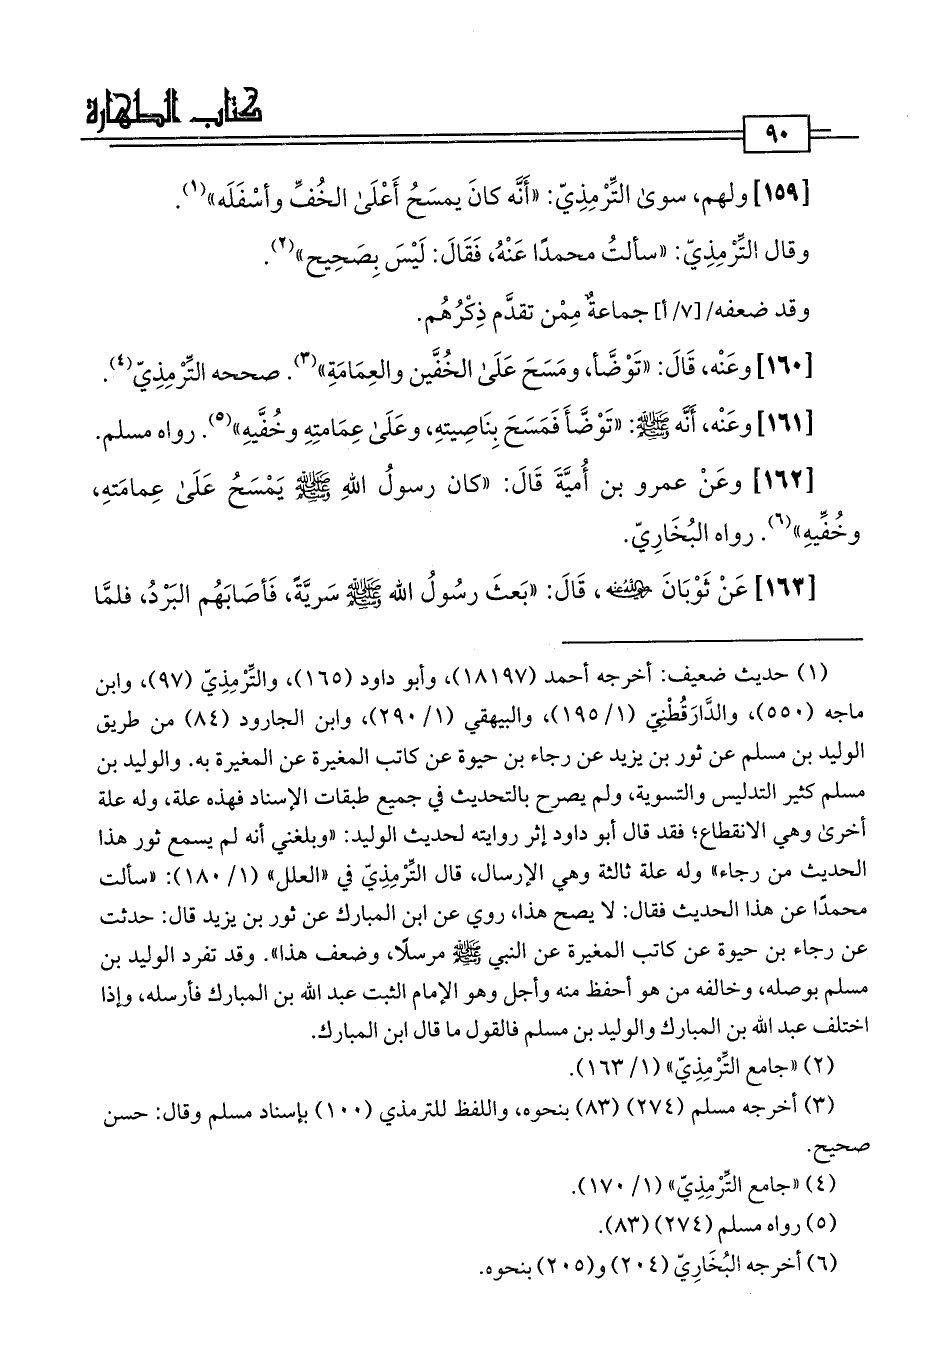 كتاب الطهارة
٩٠
[١٥٩] ولهم، سوىٰ التِّرْمِذِيّ: «أَنَّه كانَ يمسَحُ أَعْلَىٰ الخُفِّ وأسْفَلَه»(١).
وقال التِّرْمِذِيّ: «سألتُ محمدًا عَنْهُ، فَقَالَ: لَيْسَ بِصَحِيح»(٢).
وقد ضعفه/ [٧/ أ] جماعةٌ مِمْن تقدَّم ذِكْرُهُم.
[١٦٠] وعَنْه، قَالَ: «تَوْضَّأ، ومَسَحَ عَلَىٰ الخُفَّين والعِمَامَةِ»(٣). صححه التِّرْمِذِيّ(٤).
[١٦١] وعَنْه، أَنَّه ﷺ: «تَوْضَّأَ فَمَسَحَ بِنَاصِيتِهِ، وعَلَىٰ عِمَامتِهِ وخُفَّيهِ»(٥). رواه مسلم.
[١٦٢] وعَنْ عمرو بن أُميَّةَ قَالَ: «كان رسولُ اللهِ ﷺ يَمْسَحُ عَلَىٰ عِمامَتهِ،
وخُفِّيهِ»(٦). رواه البُخَارِيّ.
[١٦٣] عَنْ ثَوْبَانَ رضي الله عنه، قَالَ: «بَعثَ رسُولُ الله ﷺ سَريَّةً، فَأصَابَهُم البَرْدُ، فلمَّا
(١) حديث ضعيف: أخرجه أحمد (١٨١٩٧)، وأبو داود (١٦٥)، والتِّرْمِذِيّ (٩٧)، وابن
ماجه (٥٥٠)، والدَّارَقُطْنِيّ (١/ ١٩٥)، والبيهقي (١/ ٢٩٠)، وابن الجارود (٨٤) من طريق
الوليد بن مسلم عن ثور بن يزيد عن رجاء بن حيوة عن كاتب المغيرة عن المغيرة به. والوليد بن
مسلم كثير التدليس والتسوية، ولم يصرح بالتحديث في جميع طبقات الإسناد فهذه علة، وله علة
أخرىٰ وهي الانقطاع؛ فقد قال أبو داود إثر روايته لحديث الوليد: «وبلغني أنه لم يسمع ثور هذا
الحديث من رجاء» وله علة ثالثة وهي الإرسال، قال التِّرْمِذِيّ في «العلل» (١/ ١٨٠): «سألت
محمدًا عن هذا الحديث فقال: لا يصح هذا، روي عن ابن المبارك عن ثور بن يزيد قال: حدثت
عن رجاء بن حيوة عن كاتب المغيرة عن النبي ﷺ مرسلًا، وضعف هذا». وقد تفرد الوليد بن
مسلم بوصله، وخالفه من هو أحفظ منه وأجل وهو الإمام الثبت عبد الله بن المبارك فأرسله، وإذا
اختلف عبد الله بن المبارك والوليد بن مسلم فالقول ما قال ابن المبارك.
(٢) «جامع التِّرْمِذِيّ» (١/ ١٦٣).
(٣) أخرجه مسلم (٢٧٤) (٨٣) بنحوه، واللفظ للترمذي (١٠٠) بإسناد مسلم وقال: حسن
صحيح.
(٤) «جامع التِّرْمِذِيّ» (١/ ١٧٠).
(٥) رواه مسلم (٢٧٤) (٨٣).
(٦) أخرجه البُخَارِيّ (٢٠٤) و(٢٠٥) بنحوه.